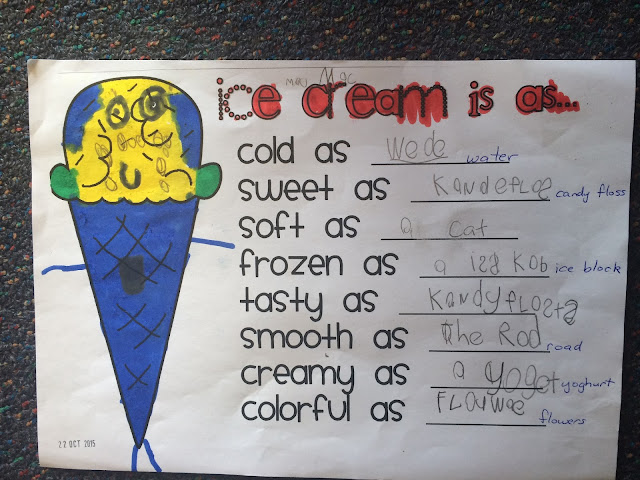 ice cream is as...
cold as wede water
sweet as Kandefloe candy floss
soft as a cat
frozen as a ise kob ice block
tasty as Kandyflosta
smooth as the Rod road
creamy as a Yoget yoghurt
colorful as Flouwae flowers
22 OCT 2015